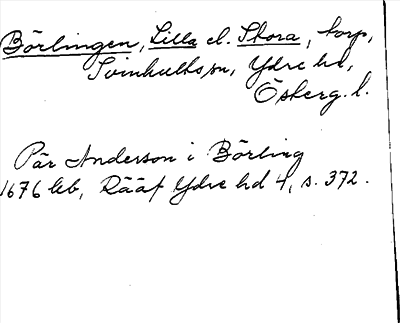 Börlingen, Lilla el. Stora, torp,
Svinhults sn, Ydre hd,
Österg. l.
Pär Anderson i Börling
1676 lb, Rääf Ydre hd 4, s. 372.